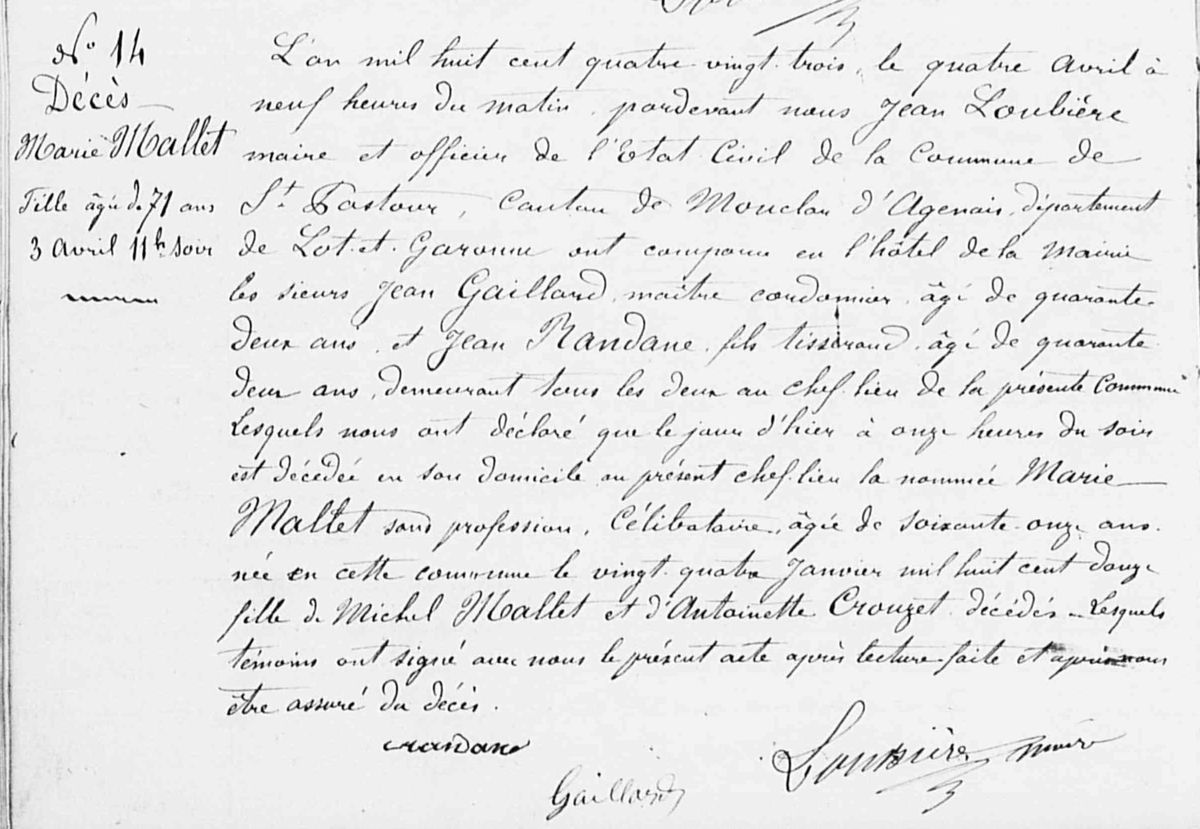 N° 14
Décès
Marie Mallet
Fille âgée de 71 ans
3 Avril 11h soir
L'an mil huit cent quatre-vingt-trois, le quatre Avril à
neuf heures du matin, pardevant nous Jean Loubière
maire et officier de l'Etat-Civil de la Commune de
St Pastour, Canton de Monclar d'Agenais, département
de Lot-et-Garonne ont comparu en l'hôtel de la Mairie
les sieurs Jean Gaillard, maître cordonnier, âgé de quarante-
deux ans, et Jean Randane, fils tisserand, âgé de quarante-
deux ans, demeurant tous les deux au chef-lieu de la présente Commune
Lesquels nous ont déclaré que le jour d'hier à onze heures du soir
est décédée en son domicile au présent chef-lieu la nommée Marie
Mallet sans profession, Célibataire, âgée de soixante-onze ans.
née en cette commune le vingt-quatre Janvier mil huit cent douze
fille de Michel Mallet et d'Antoinette Crouzet décédés. Lesquels
témoins ont signé avec nous le présent acte après lecture faite et après nous
être assuré du décès.
Randane
Gaillard
Loubière maire